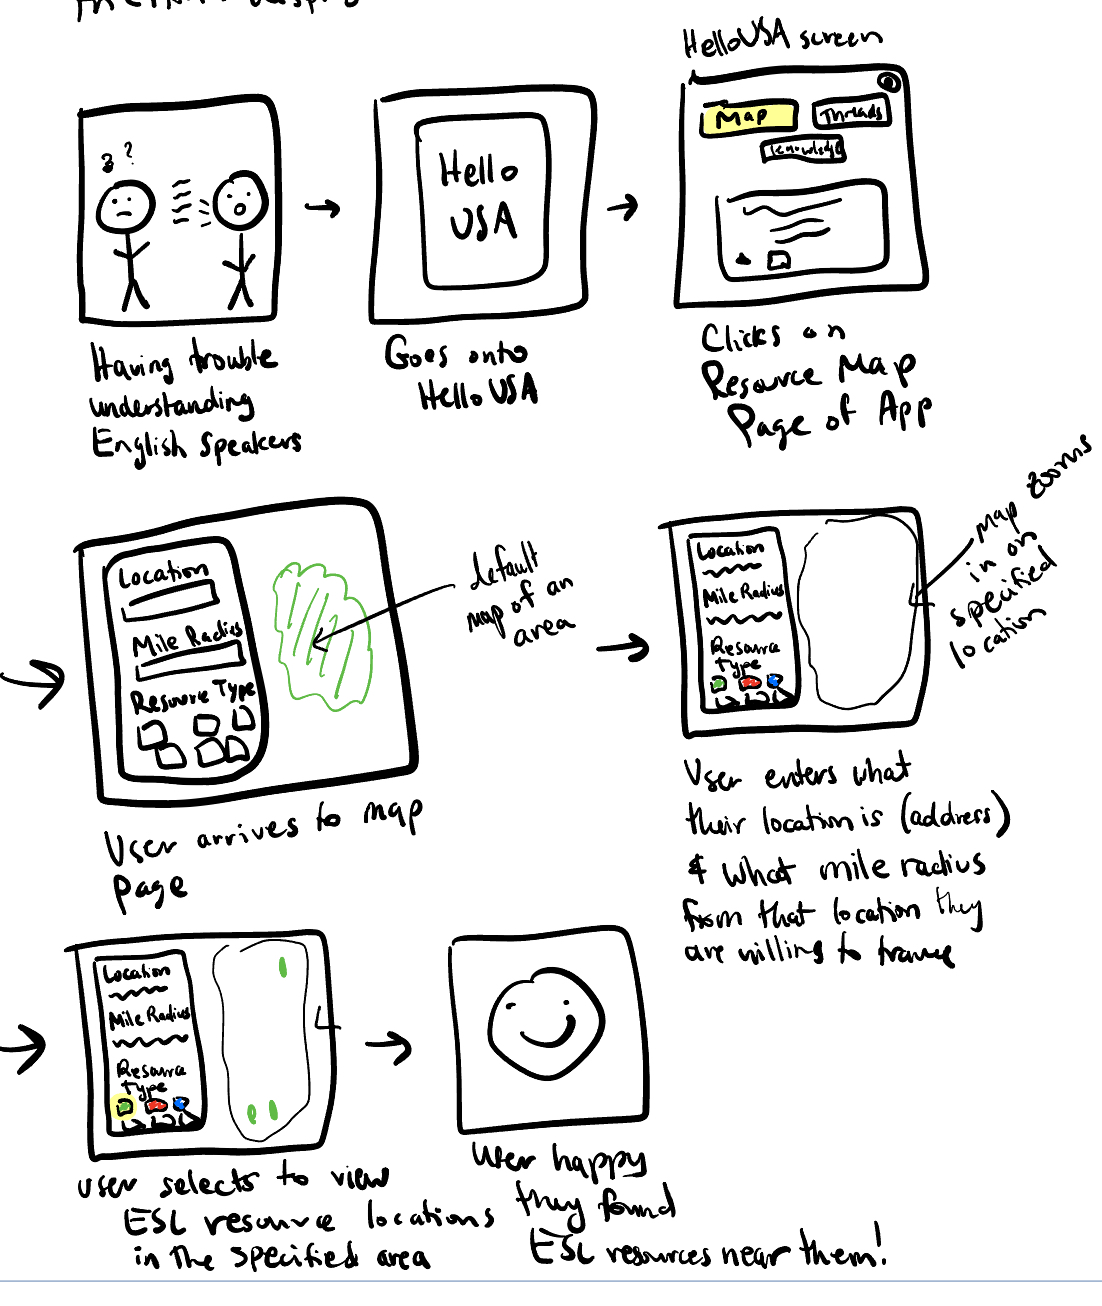 HelloUSA screen
? ?
Hello
USA
Map
Threads
Knowledge
Having trouble
understanding
English speakers
Goes onto
Hello USA
Clicks on
Resource Map
Page of App
Location
Mile Radius
Resource Type
default
map of an
area
User arrives to map
page
Location
Mile Radius
Resource
Type
Map zooms
in on
specified
location
User enters what
their location is (address)
& what mile radius
from that location they
are willing to
Location
Mile Radius
Resource
Type
user selects to view
ESL resource locations
in the specified area
User happy
they found
ESL resources near them!